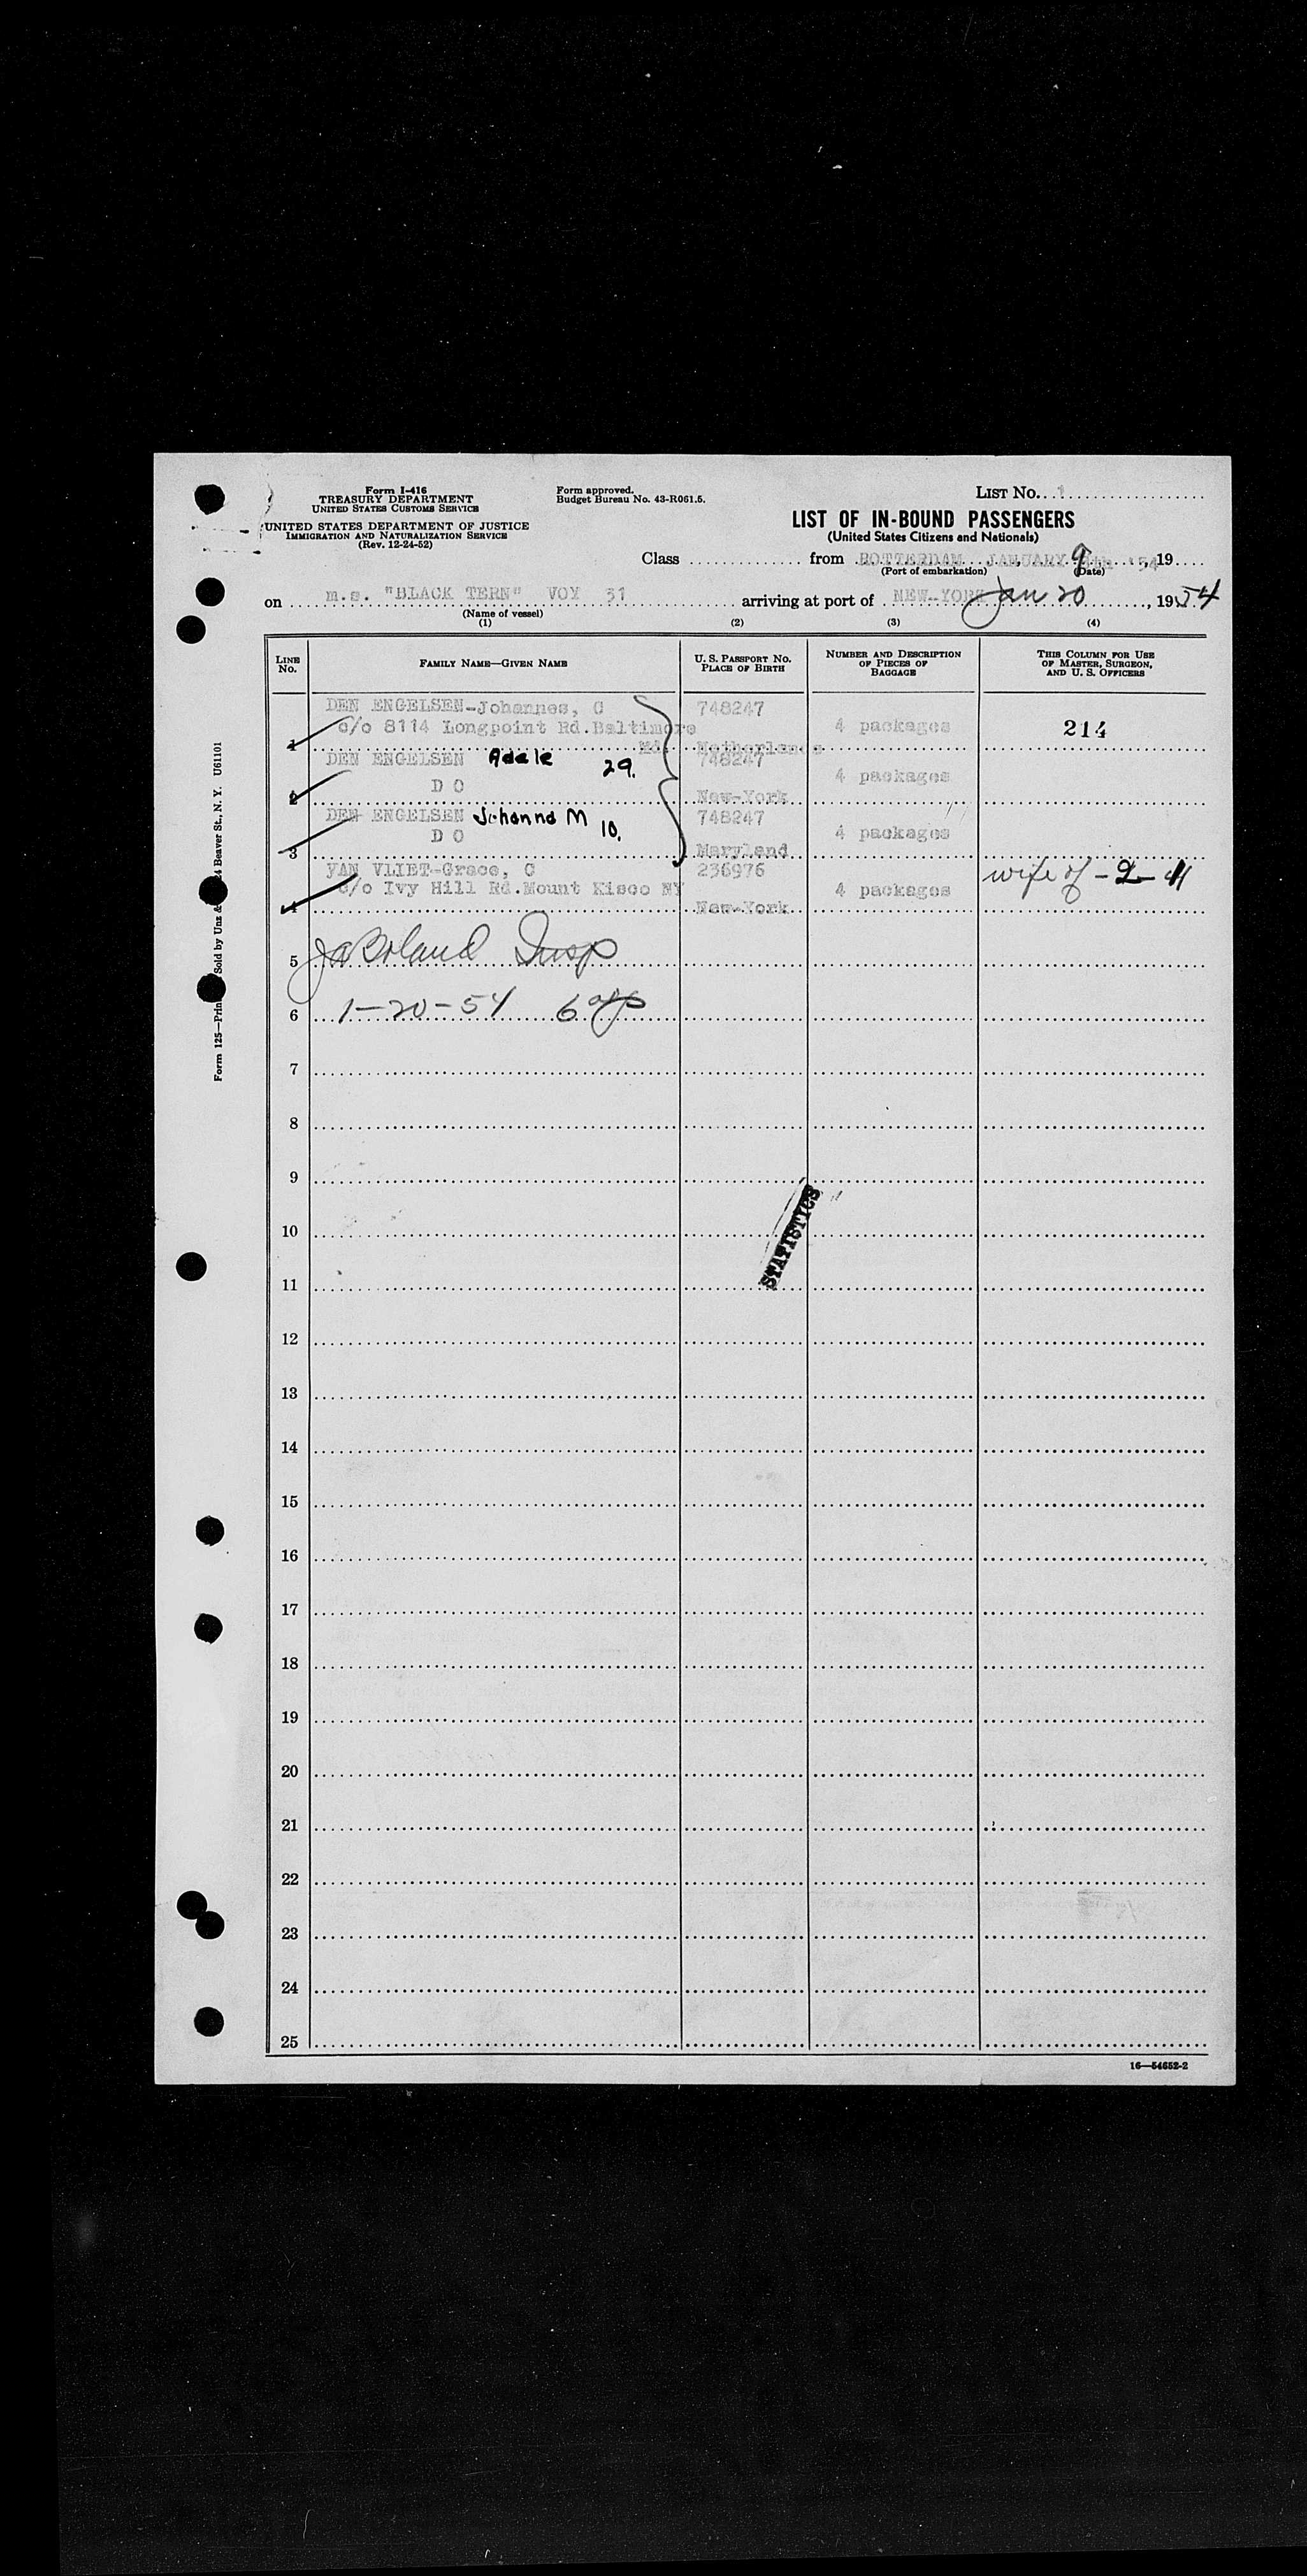 Form I-416
TREASURY DEPARTMENT
UNITED STATES CUSTOMS SERVICE
UNITED STATES DEPARTMENT OF JUSTICE
IMMIGRATION AND NATURALIZATION SERVICE
(Rev. 12-24-52)
Form approved.
Budget Bureau No. 43-R061.5.
LIST No. 1
LIST OF IN-BOUND PASSENGERS
(United States Citizens and Nationals)
Class from ROTTERDAM JANUARY 9 '54, 19
(Port of embarkation) (Date)
on m.s. "BLACK TERN" VOY 31 arriving at port of NEW-YORK Jan 20, 1954
(Name of vessel)
(1) (2) (3) (4)
LINE No. FAMILY NAME—GIVEN NAME U. S. PASSPORT NO. PLACE OF BIRTH NUMBER AND DESCRIPTION OF PIECES OF BAGGAGE THIS COLUMN FOR USE OF MASTER, SURGEON, AND U. S. OFFICERS
DEN ENGELSEN-Johannes, C 748247
c/o 8114 Longpoint Rd.Baltimore 4 packages 214
1 Md. Netherlands
DEN ENGELSEN Adele 29. 748247
2 D O 4 packages
New-York
DEN ENGELSEN Johanna M 10. 748247
D O 4 packages
3 Maryland
VAN VLIET-Grace, C 236976 wife of -2-4
c/o Ivy Hill Rd.Mount Kisco NY 4 packages
4 New-York
5 Boland Insp
6 1-20-54 6
7
8
9
10
11
STATISTICS
12
13
14
15
16
17
18
19
20
21
22
23
24
25
16—54652-2
Form 125—Prin Sold by Unz & 24 Beaver St., N. Y. U61101